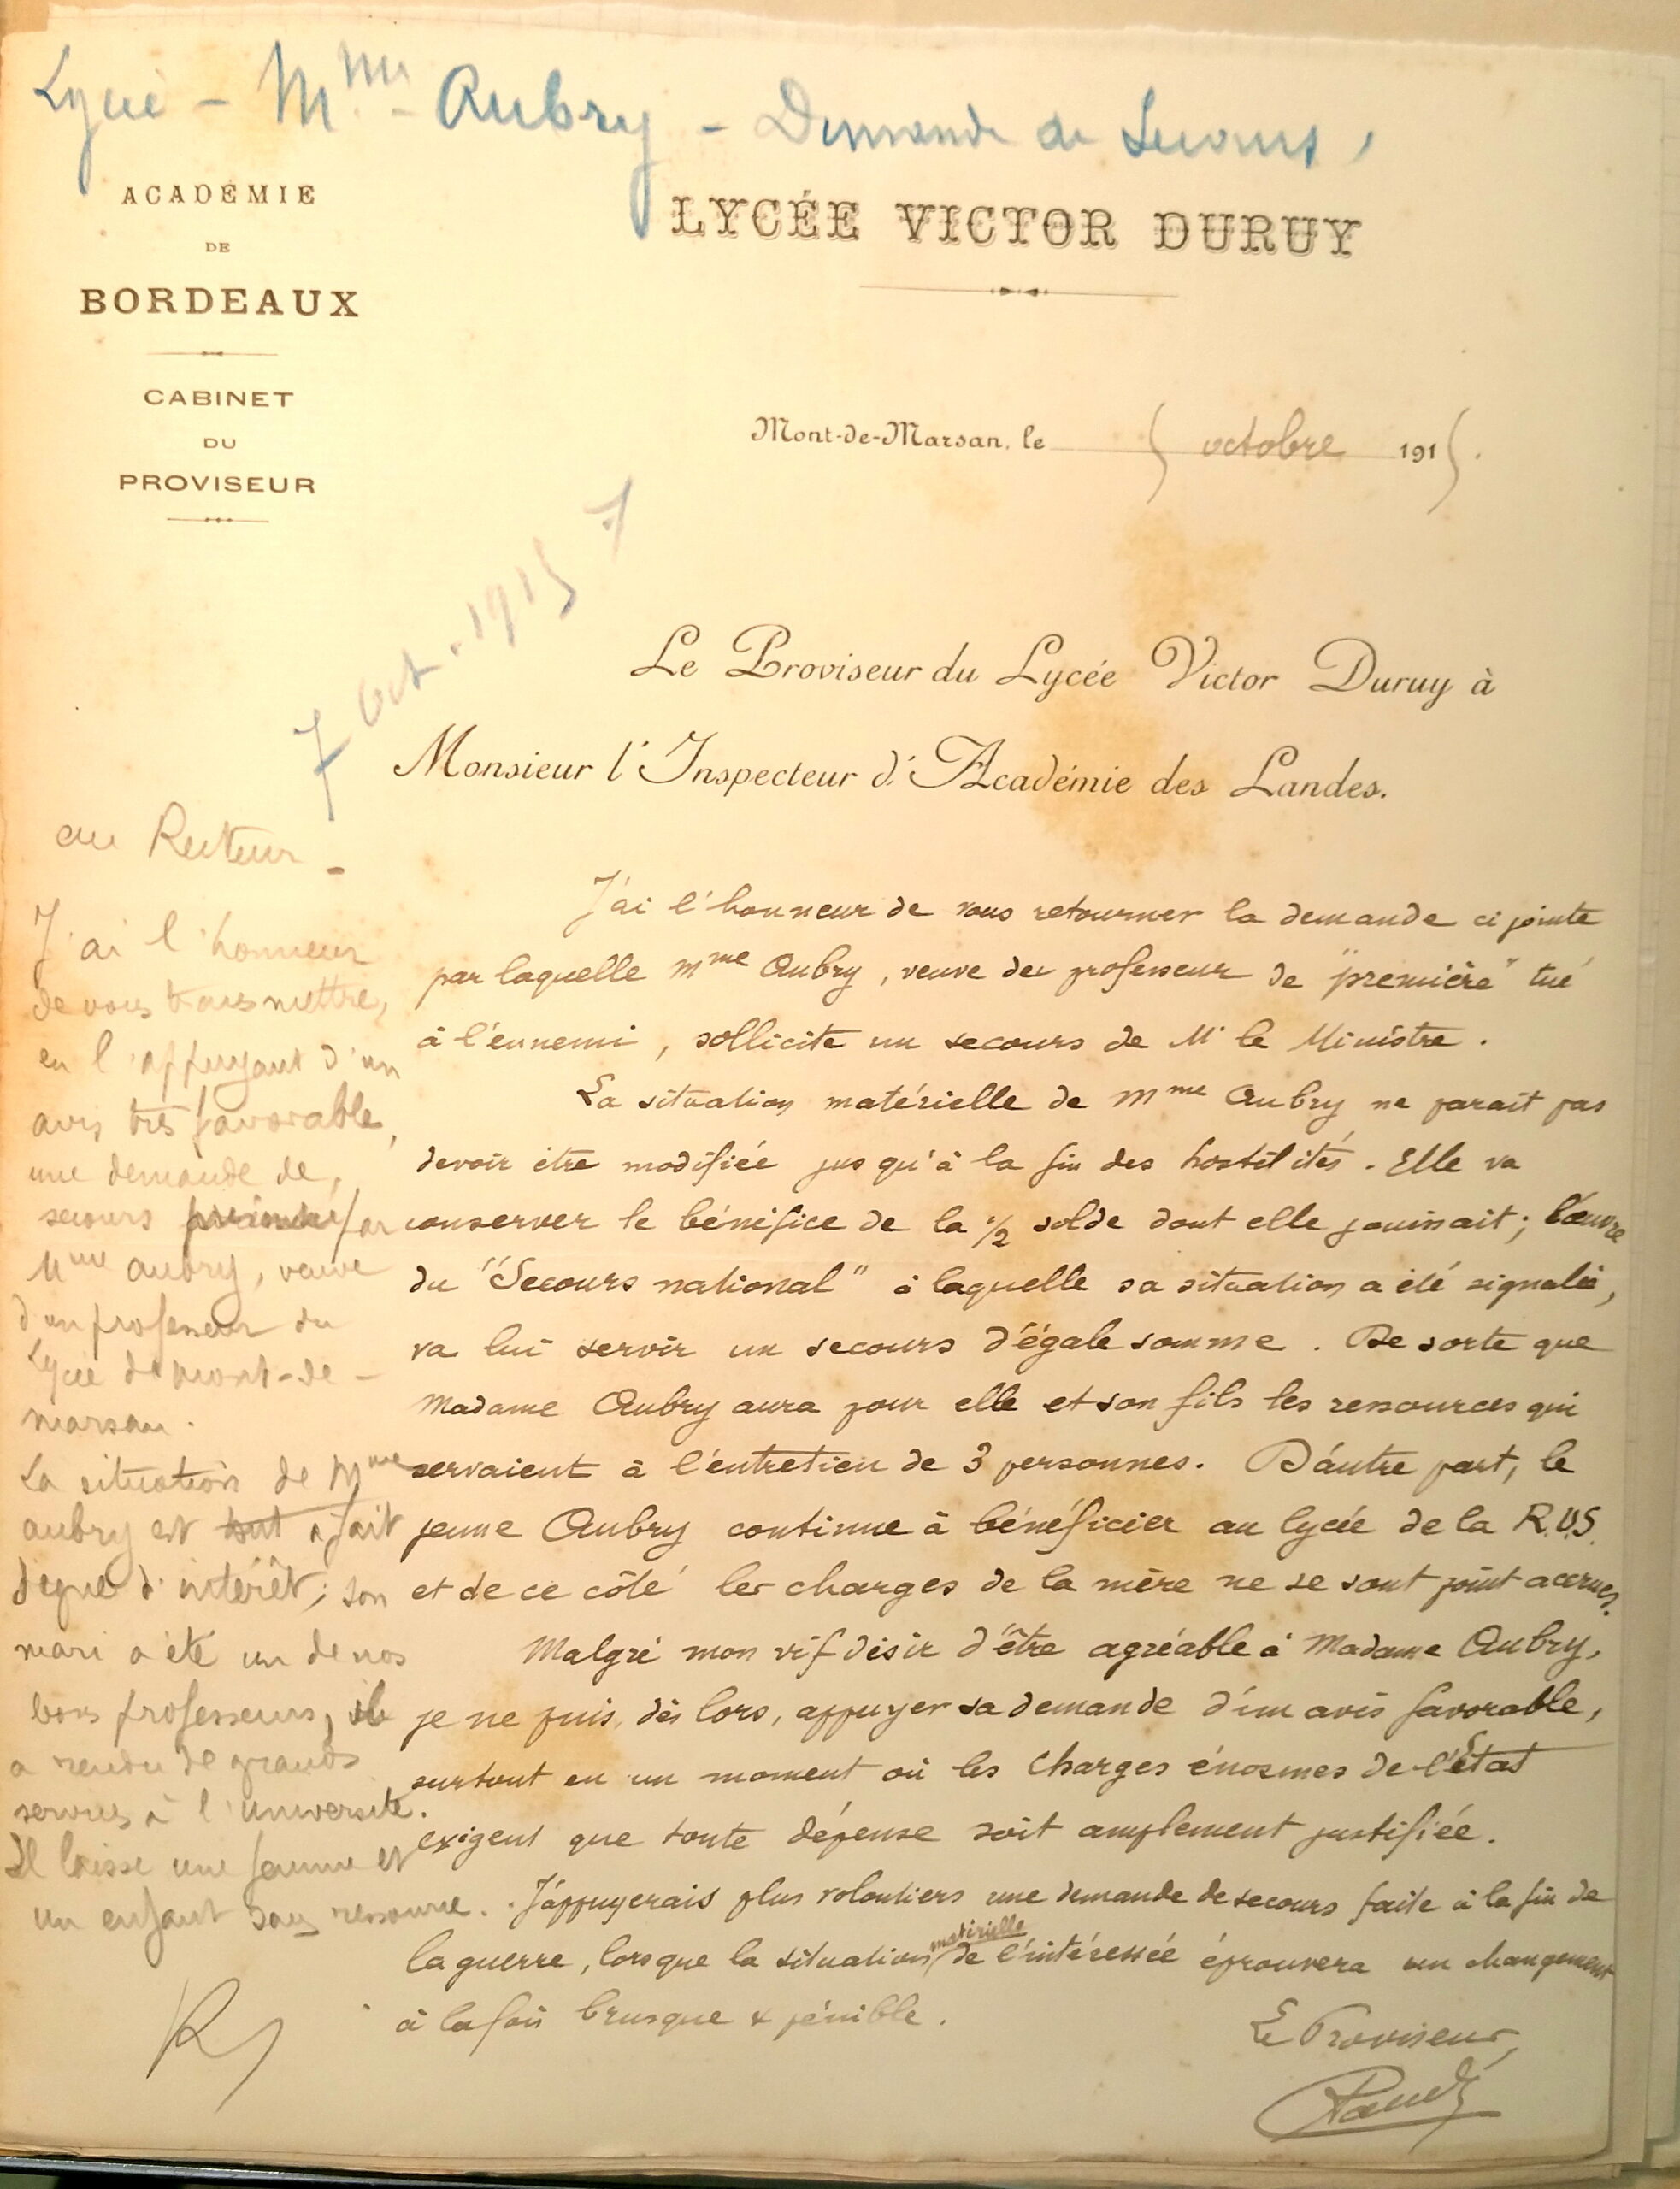 Lycée - Mme - Aubry - Demande de Secours,
ACADÉMIE
DE
BORDEAUX
CABINET
DU
PROVISEUR
LYCÉE VICTOR DURUY
Mont-de-Marsan, le 5 octobre 1915.
7 Oct. 1915
Le Proviseur du Lycée Victor Duruy à
Monsieur l'Inspecteur d'Académie des Landes.
J'ai l'honneur de vous retourner la demande ci jointe
par laquelle Mme Aubry, veuve du professeur de "première" tué
à l'ennemi, sollicite un secours de Mr le Ministre.
La situation matérielle de Mme Aubry ne parait pas
devoir être modifiée jusqu'à la fin des hostilités. Elle va
conserver le bénéfice de la 1/2 solde dont elle jouissait ; l'œuvre
du "Secours national" à laquelle sa situation a été signalée,
va lui servir un secours d'égale somme. De sorte que
Madame Aubry aura pour elle et son fils les ressources qui
servaient à l'entretien de 3 personnes. D'autre part, le
jeune Aubry continue à bénéficier au lycée de la R.U.S.
et de ce côté les charges de la mère ne se sont point accrues.
Malgré mon vif désir d'être agréable à Madame Aubry,
je ne puis, dès lors, appuyer sa demande d'un avis favorable,
surtout en un moment où les charges énormes de l'État
exigent que toute dépense soit amplement justifiée.
J'appuyerais plus volontiers une demande de secours faite à la fin de
la guerre, lorsque la situation matérielle de l'intéressée éprouvera un changement
à la fois brusque & pénible.
Le Proviseur,
au Recteur -
J'ai l'honneur
de vous transmettre,
en l'appuyant d'un
avis très favorable,
une demande de
secours par
Mme Aubry, veuve
d'un professeur du
Lycée de Mont-de-
Marsan.
La situation de Mme
Aubry est tout à fait
digne d'intérêt ; son
mari a été un de nos
bons professeurs, il
a rendu de grands
services à l'Université.
Il laisse une femme et
un enfant sans ressource.